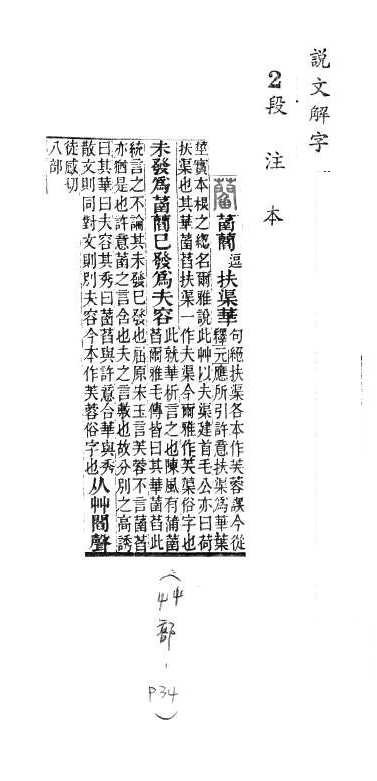 說文解字
2段注本
菡 逗 扶渠華 句絕扶渠各本作芙蓉誤今從
釋元應所引許意扶渠爲華葉
莖實本根之緫名爾雅說此艸以夫渠建首毛公亦曰荷
扶渠也其華菡萏扶渠一作夫渠今爾雅作芙蕖俗字也
未發爲菡 已發爲夫容 此就華析言之也陳風有蒲菡
萏爾雅毛傳皆曰其華菡萏此
統言之不論其未發已發也屈原宋玉言芙蓉不言菡萏
亦猶是也許意菡之言含也夫之言敷也故分別之高誘
曰其華曰夫容其秀曰菡萏與許意合華與秀
散文則同對文則別夫容今本作芙蓉俗字也 从艸閻聲
徒感切
八部
(艸部,P34)